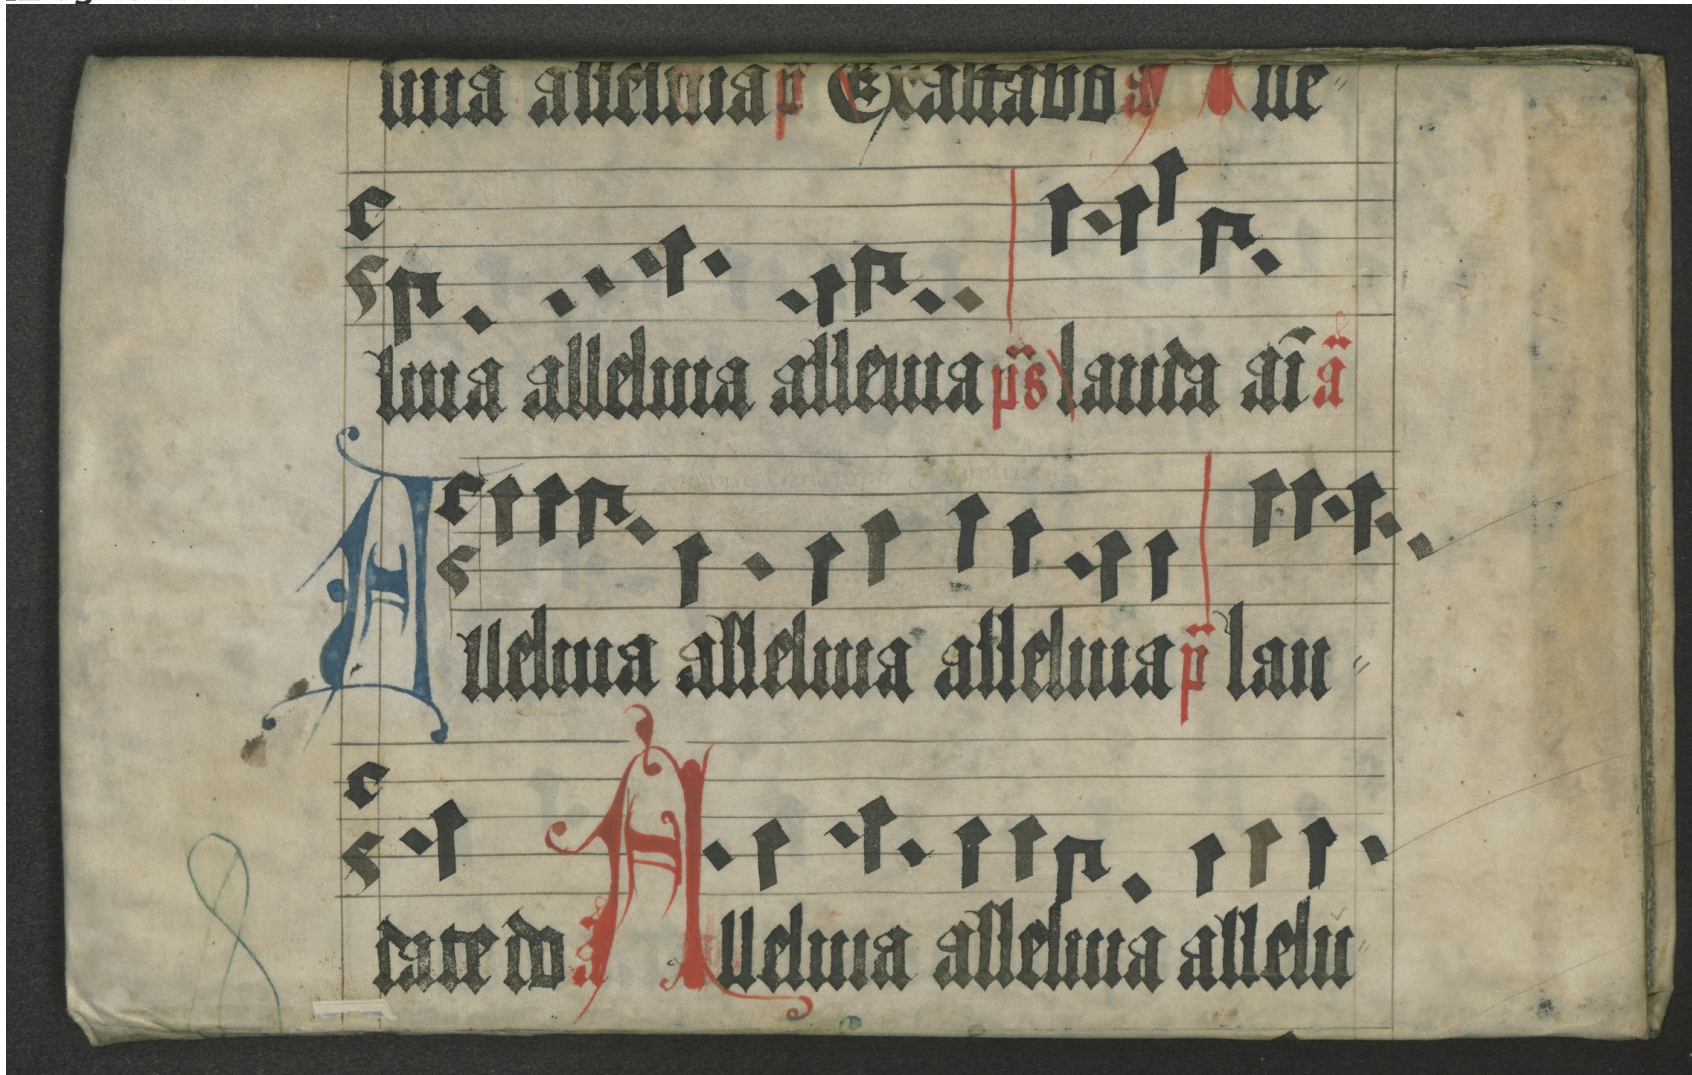 luia alleluia p̄ Exaltabo a ue
luia alleluia alleuia ps lauda ai a
Alleluia alleluia alleluia p lau
date do a Alleluia alleluia allelu